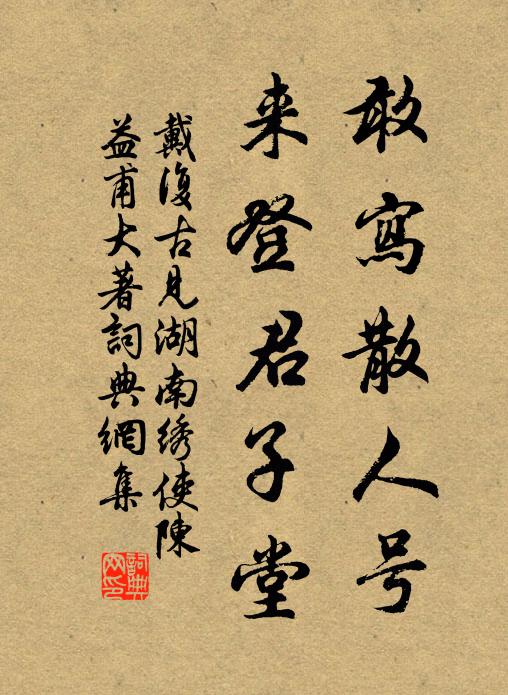 敢寫散人号
来登君子堂
戴復古見湖南绣使陳
益甫大著詞典網集
詞典網印